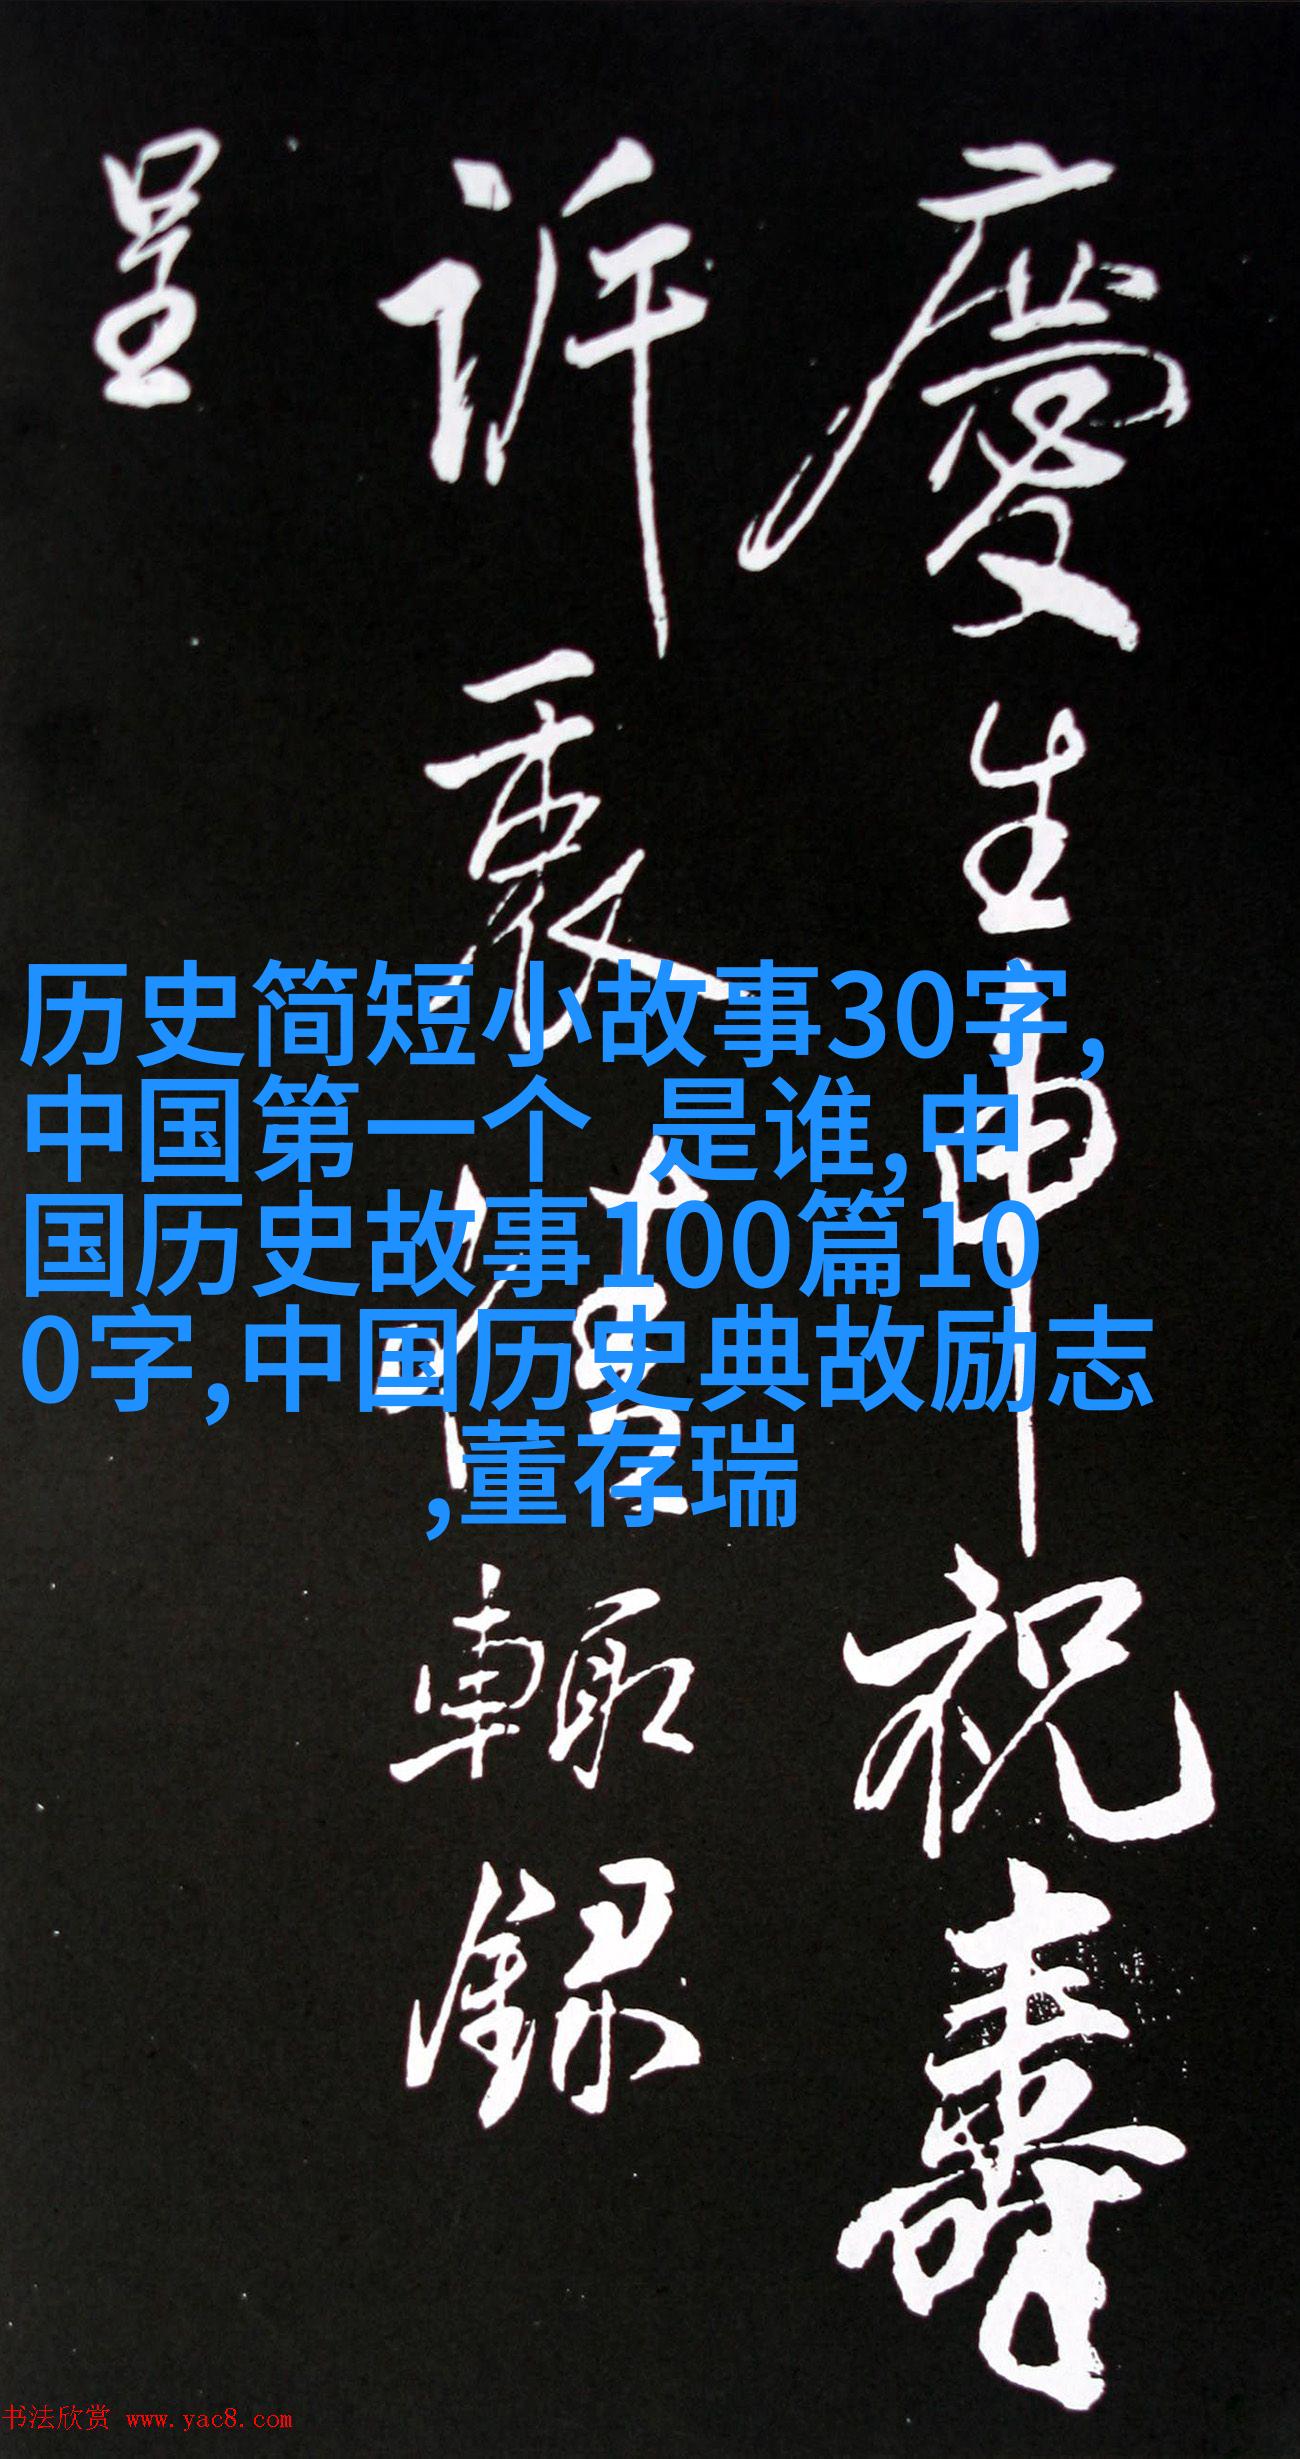 慶生申祝壽
訴衷情輙録
呈
历史简短小故事30字,
中国第一个 是谁,中
国历史故事100篇10
0字,中国历史典故励志
,董存瑞
书法欣赏 www.yac8.com